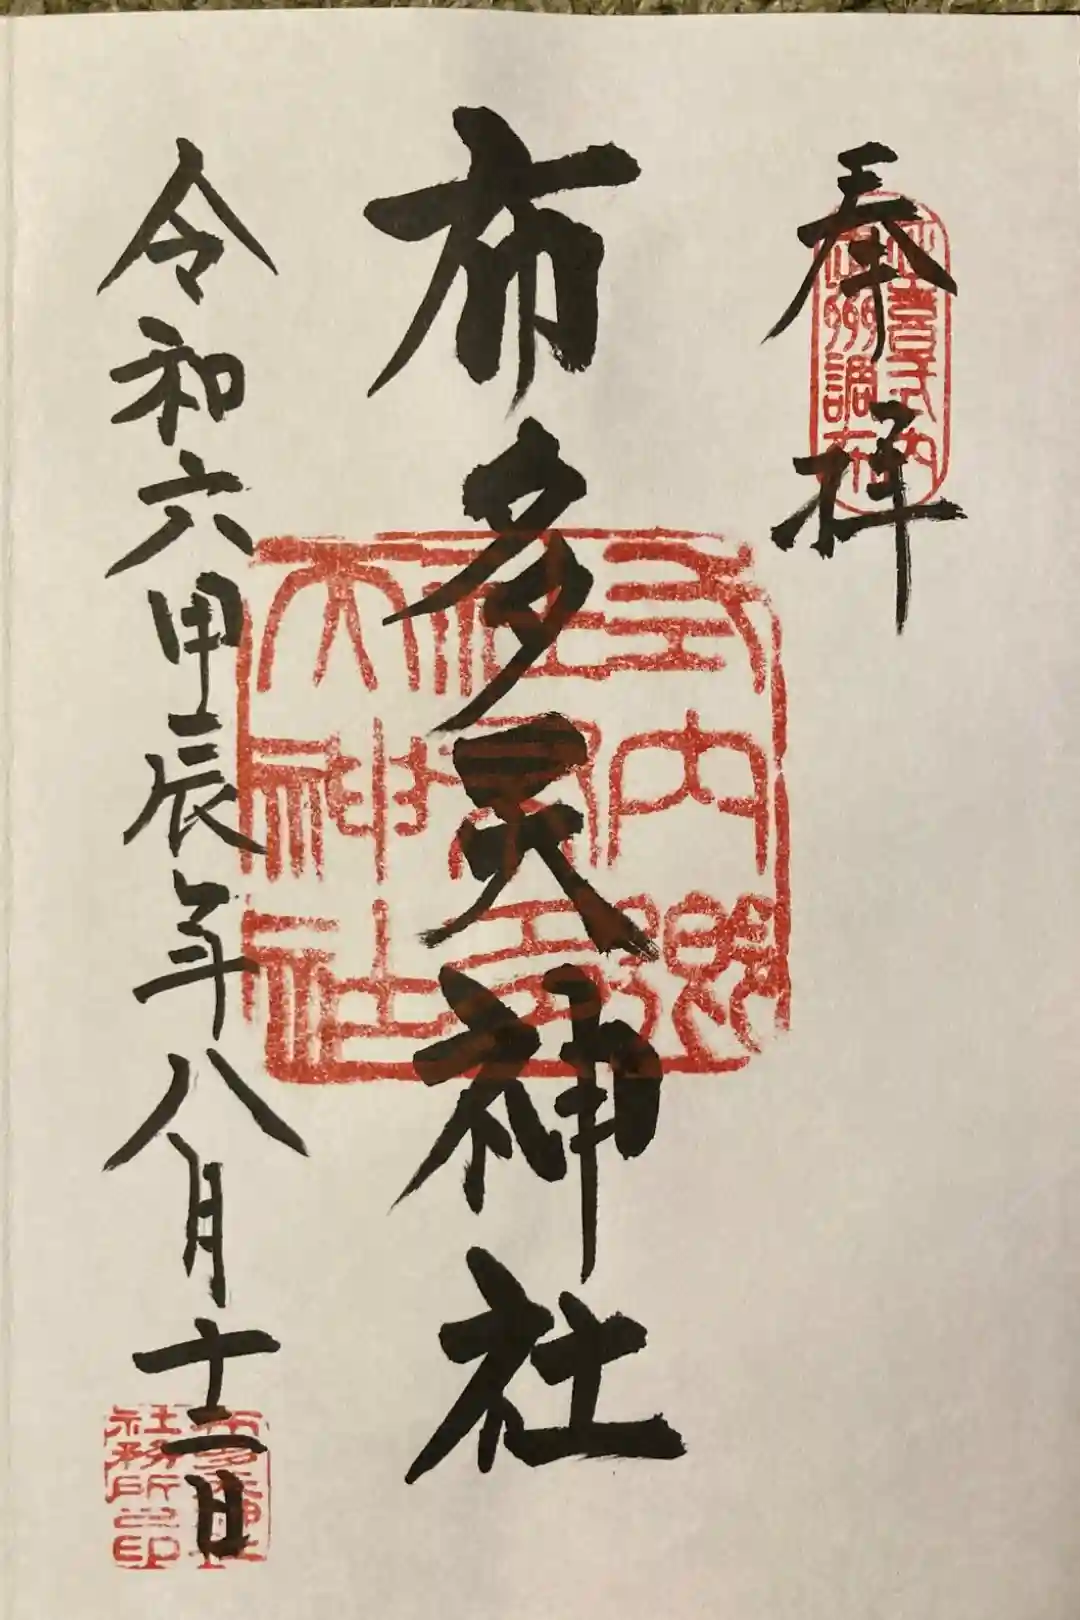 奉拝
延喜式内
武州調布
布多天神社
式内郷
社布多
天神社
令和六甲辰年八月十二日
布多天神社
社務所之印